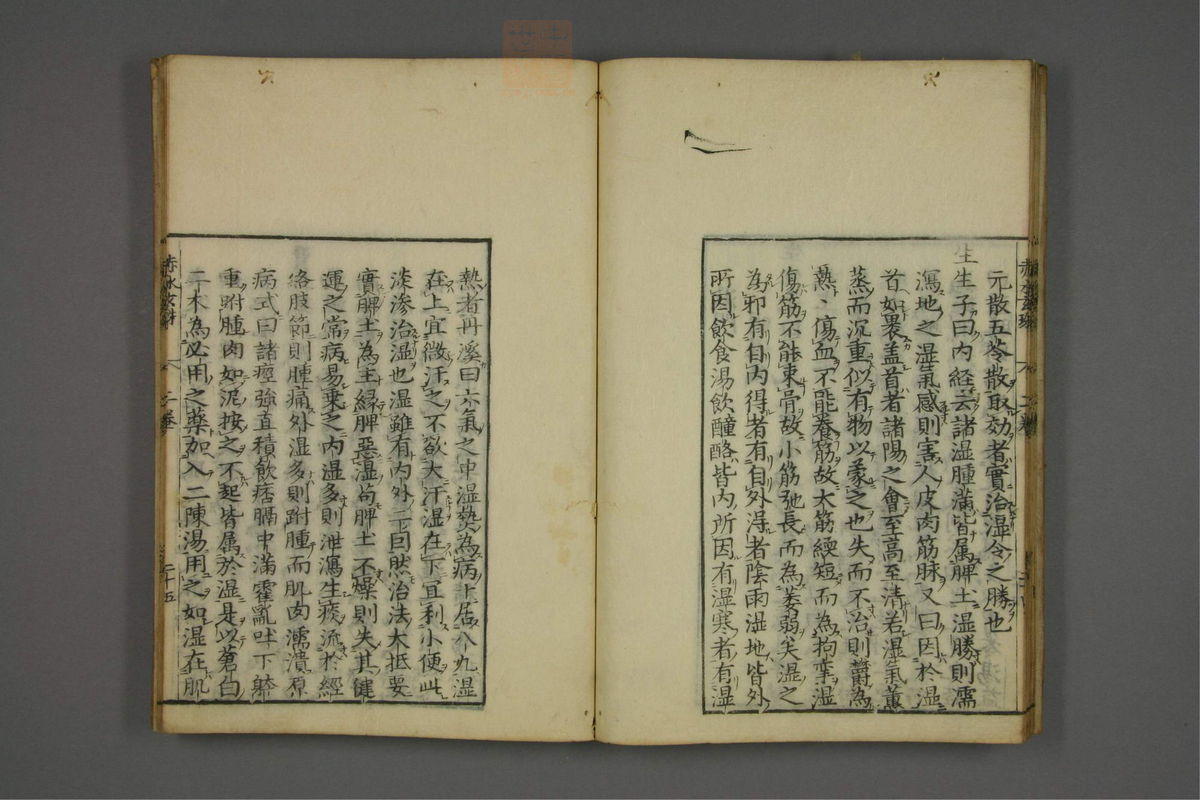 元散五苓散取効者實治湿令之勝也
生生子曰内経云諸湿腫滿皆属脾土湿勝則濡
瀉地之湿氣感則害人皮肉筋脉又曰因於湿
首如裹盖首者諸陽之會至高至清若湿氣薫
蒸而沉重似有物以蒙之也失而不治則欝為
熱〻傷血不能養筋故大筋緛短而為拘攣湿
傷筋不能束骨故小筋弛長而為萎弱矣湿之
為邪有自内得者有自外得者陰雨湿地皆外
所因飲食湯飲醴酪皆内所因有湿寒者有湿
熱者丹溪曰六氣之中湿熱為病十居八九湿
在上宜微汗之不欲大汗湿在下宜利小便此
淡渗治湿也湿雖有内外二因然治法大抵要
實脾土為主縁脾惡湿苟脾土不燥則失其健
運之常病易乗之内湿多則泄瀉生痰流於經
絡肢節則腫痛外湿多則跗腫而肌肉濡潰原
病式曰諸痙強直積飲痞膈中滿霍亂吐下躰
重跗腫肉如泥按之不起皆属於湿是以蒼白
二木為必用之藥加入二陳湯用之如湿在肌
赤水玄珠
二卷
二十五